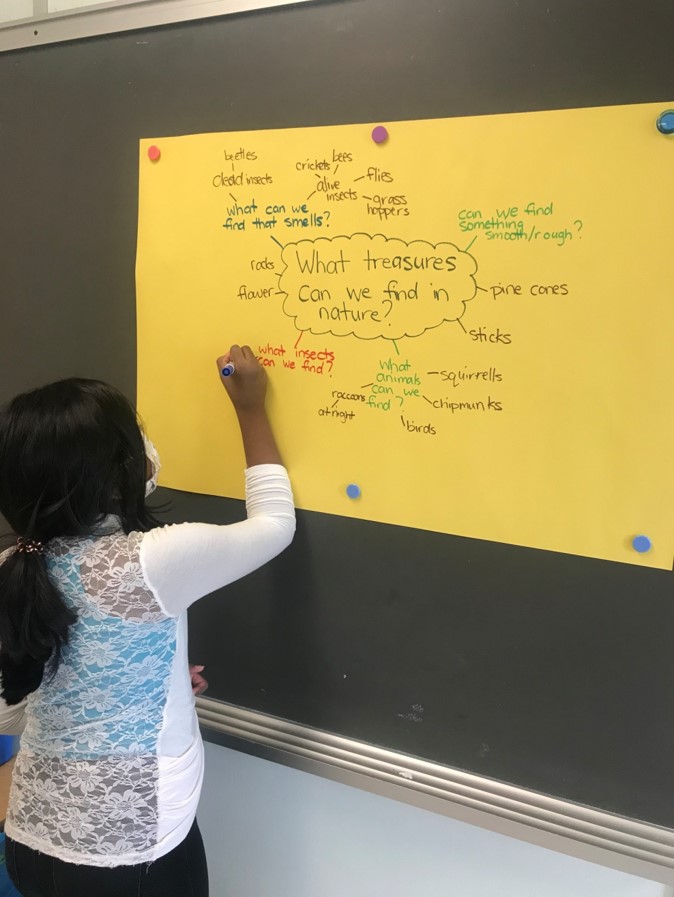 beetles
dead insects
crickets
bees
alive
insects
flies
grass
hoppers
what can we
find that smells?
can we find
something
smooth/rough?
What treasures
can we find in
nature?
rocks
flower
pine cones
sticks
what insects
can we find?
what
animals
can we
find?
squirrells
chipmunks
birds
raccoons
at night